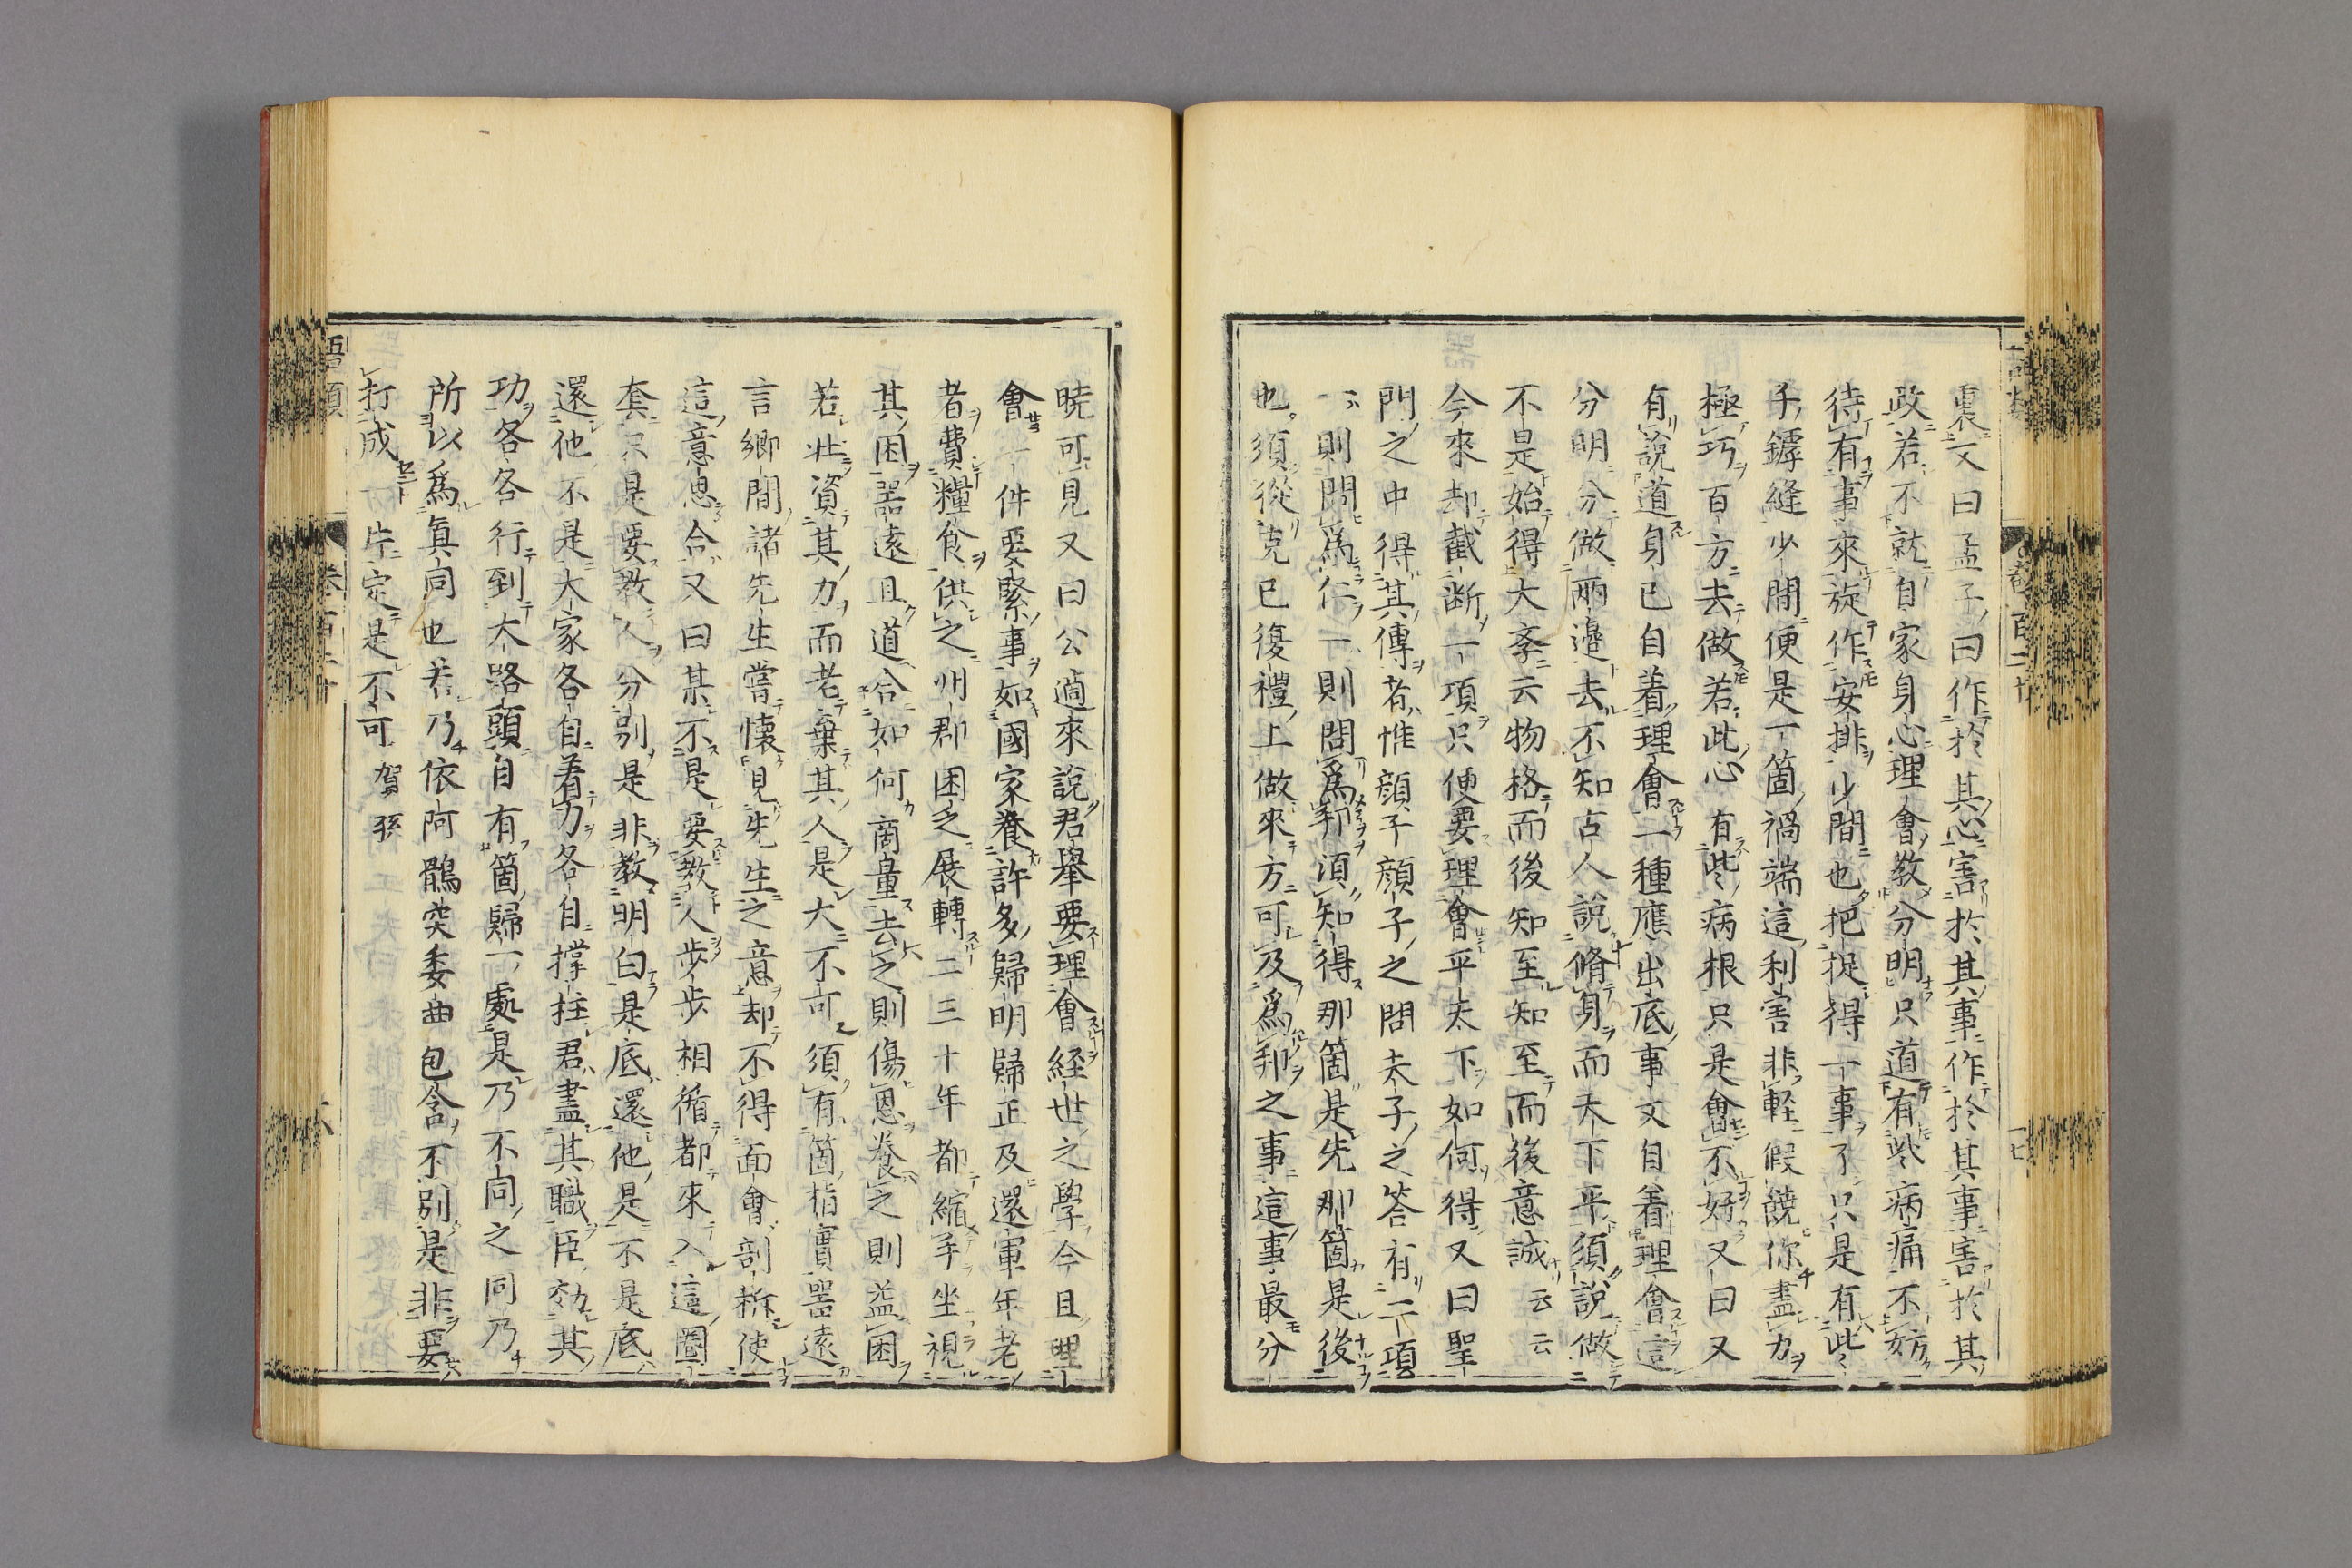 裏又曰孟子曰作於其心害於其事作於其事害於其
政若不就自家身心理會教分明只道有些病痛不妨
待有事來旋作安排少間也把捉得一事了只是有此
手鏬縫少間便是一箇禍端這利害非輕假饒你盡力
極巧百方去做若此心有些病根只是會不好又曰又
有說道身己自着理會一種應出底事又自着理會這
分明分做兩邊去不知古人說脩身而天下平須說做
不是始得大學云物格而後知至知至而後意誠云云
今來却截断一項只便要理會平天下如何得又曰聖
門之中得其傳者惟顔子顔子之問夫子之答有二項
一則問爲仁一則問爲邦須知得那箇是先那箇是後
也須從克己復禮上做來方可及爲邦之事這事最分
曉可見又曰公適來說君舉要理會経世之學今且理
會一件要緊事如國家養許多歸明歸正及還軍年老
者費糧食供之州郡困乏展轉二三十年都縮手坐視
其困器遠且道合如何商量去之則傷恩養之則益困
若壯資其力而老棄其人是大不可須有箇指實器遠
言鄉間諸先生嘗懷見先生之意却不得面會剖析使
這意思合又曰某不是要教人步步相循都來入這圈
套只是要教人分別是非教明白是底還他是不是底
還他不是大家各自着力各自撑拄君盡其職臣効其
功各各行到大路頭自有箇歸一處是乃不同之同乃
所以爲眞同也若乃依阿鶻突委曲包含不別是非要
打成一片定是不可 賀孫
語類 卷百二十